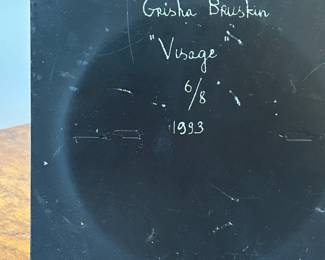 Grisha Bruskin
"Visage"
6/8
1993